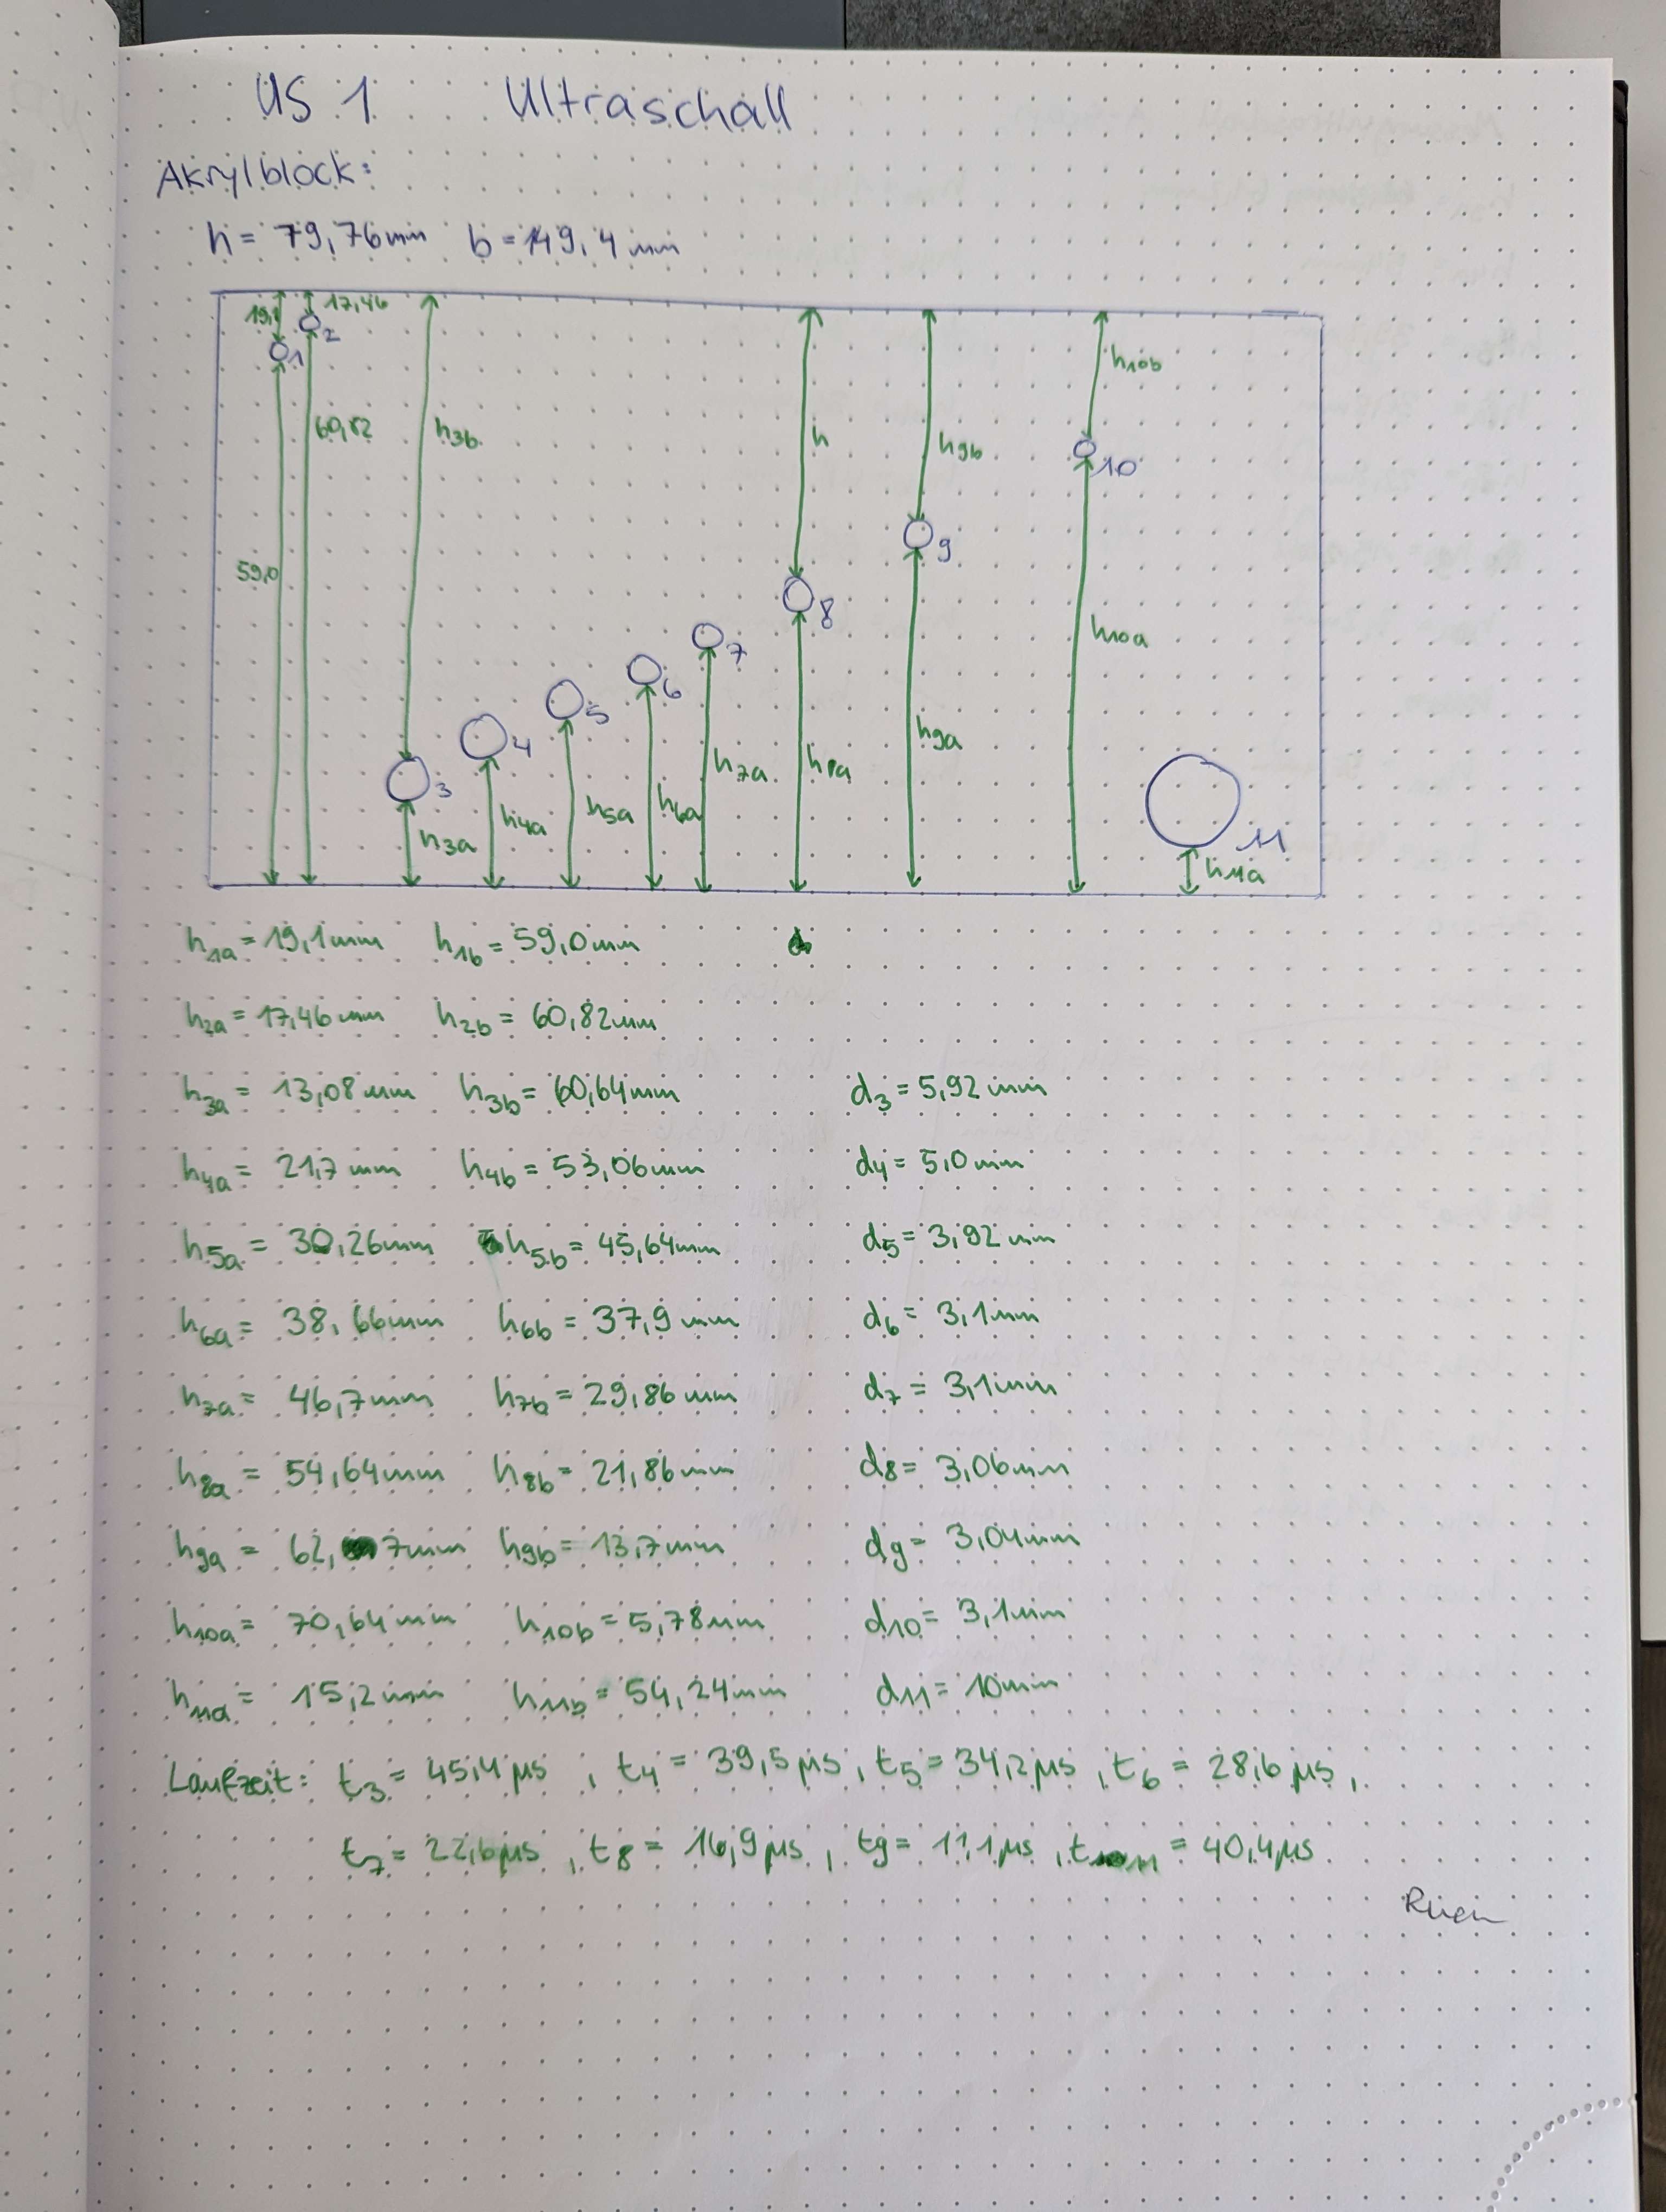 US 1 Ultraschall
Akrylblock:
h = 79,76mm b = 149,4 mm
19,1 17,46
2
1
h10b
60,82 h3b h h9b
10
9
59,0
8
h10a
7
6
5
h9a
4
h7a h8a
3
h5a h6a
h4a
h3a
11
h11a
h1a = 19,1mm h1b = 59,0mm
h2a = 17,46mm h2b = 60,82mm
h3a = 13,08mm h3b = 60,64mm d3 = 5,92mm
h4a = 21,7mm h4b = 53,06mm d4 = 5,0mm
h5a = 30,26mm h5b = 45,64mm d5 = 3,92mm
h6a = 38,66mm h6b = 37,9mm d6 = 3,1mm
h7a = 46,7mm h7b = 29,86mm d7 = 3,1mm
h8a = 54,64mm h8b = 21,86mm d8 = 3,06mm
h9a = 62,7mm h9b = 13,7mm d9 = 3,04mm
h10a = 70,64mm h10b = 5,78mm d10 = 3,1mm
h11a = 15,2mm h11b = 54,24mm d11 = 10mm
Laufzeit: t3 = 45,4 µs , t4 = 39,5 µs , t5 = 34,2 µs , t6 = 28,6 µs ,
t7 = 22,6 µs , t8 = 16,9 µs , t9 = 11,1 µs , t11 = 40,4 µs